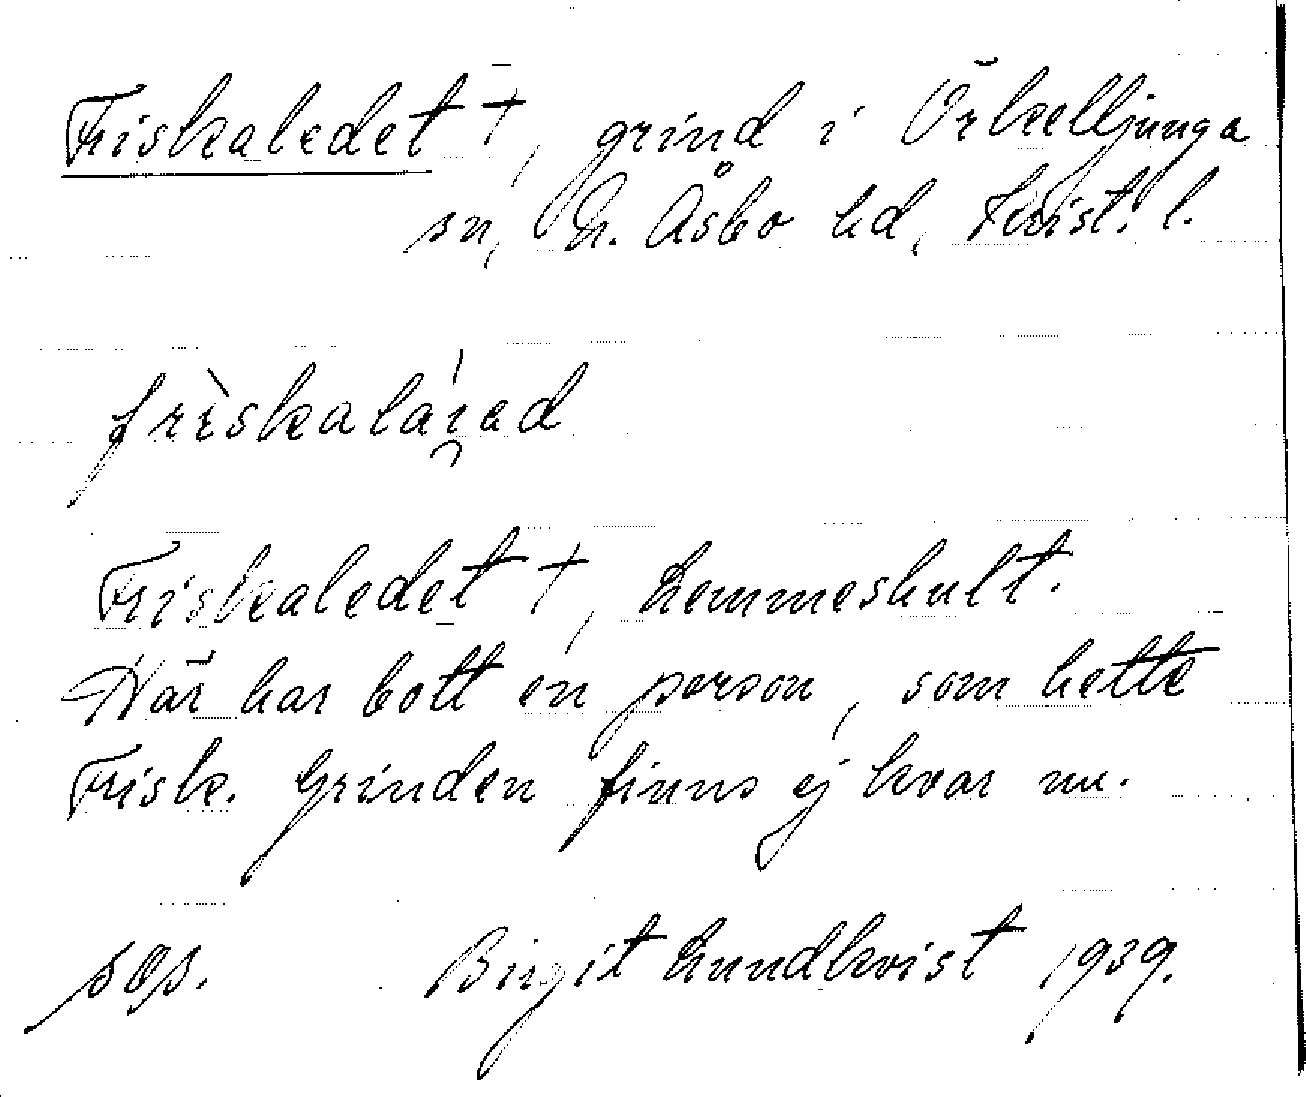 Friskaledet †, grind i Örkelljunga
sn, N. Åsbo hd, Krist. l.
frìskalái̯ad
Friskaledet †, Lemmeshult.
Här har bott en person, som hette
Frisk. Grinden finns ej kvar nu.
sOs. Birgit Lundkvist 1939.